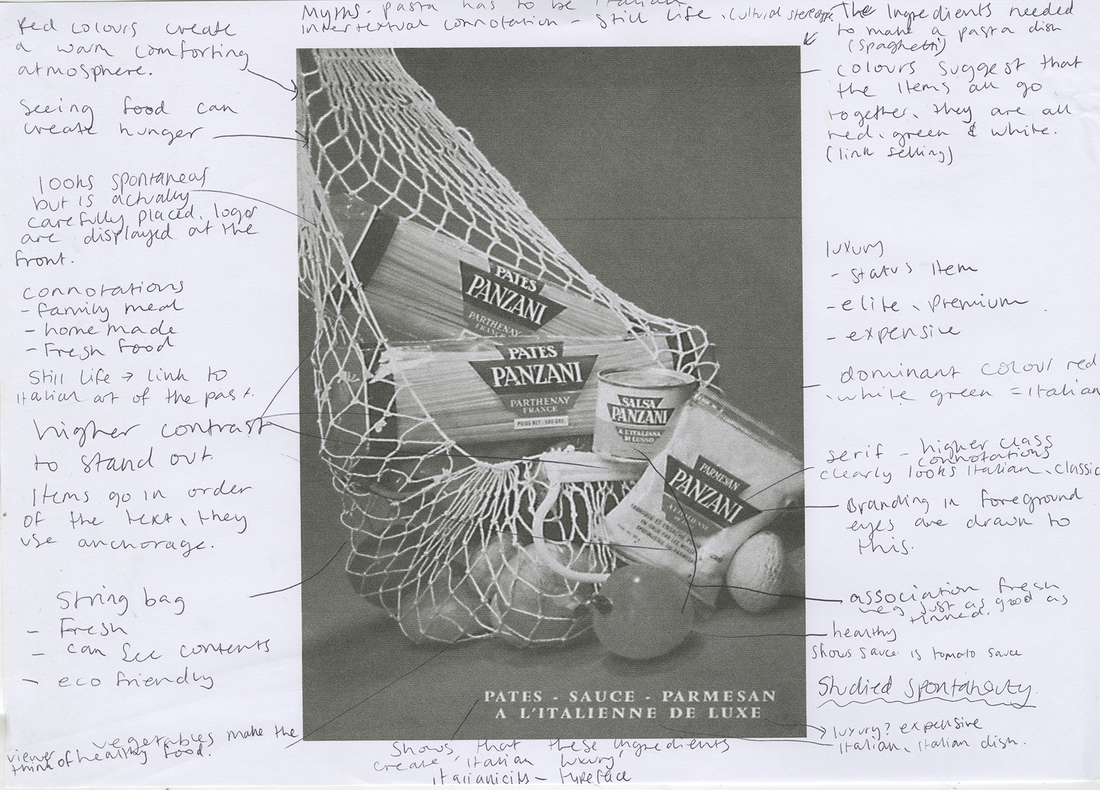 Myths - pasta has to be Italian
intertextual connotation - Still Life, cultural
Red colours create
a warm comforting
atmosphere.
Seeing food can
create hunger
looks spontaneas
but is actually
carefully placed, logos
are displayed at the
front.
connotations
- family meal
- home made
- Fresh food
Still life → link to
italian art of the past.
higher contrast
to stand out.
Items go in order
of the text, they
use anchorage.
String bag
- Fresh
- can see contents
- eco friendly
vegetables make the
viewer
think of healthy food.
PATES
PANZANI
PARTHENAY
FRANCE
PATES
PANZANI
PARTHENAY
FRANCE
POIDS NET 500 GRS
SALSA
PANZANI
A L'ITALIANA
DI LUSSO
PARMESAN
PANZANI
PATES - SAUCE - PARMESAN
A L'ITALIENNE DE LUXE
Shows that these ingredients
create 'Italian luxury'
italianicits - typeface
The Ingredients needed
to make a pasta dish
(spaghetti)
colours suggest that
the items all go
together, they are all
red, green & white.
(link selling)
luxury
- status item
- elite, premium
- expensive
dominant colour red
, white green = italian
serif - higher class
connotations
clearly looks italian, classic
Branding in foreground
eyes are drawn to
this.
association fresh
veg just as good as
tinned.
healthy
shows sauce is tomato sauce
Studied Spontaneity
luxury? expensive
italian, italian dish.